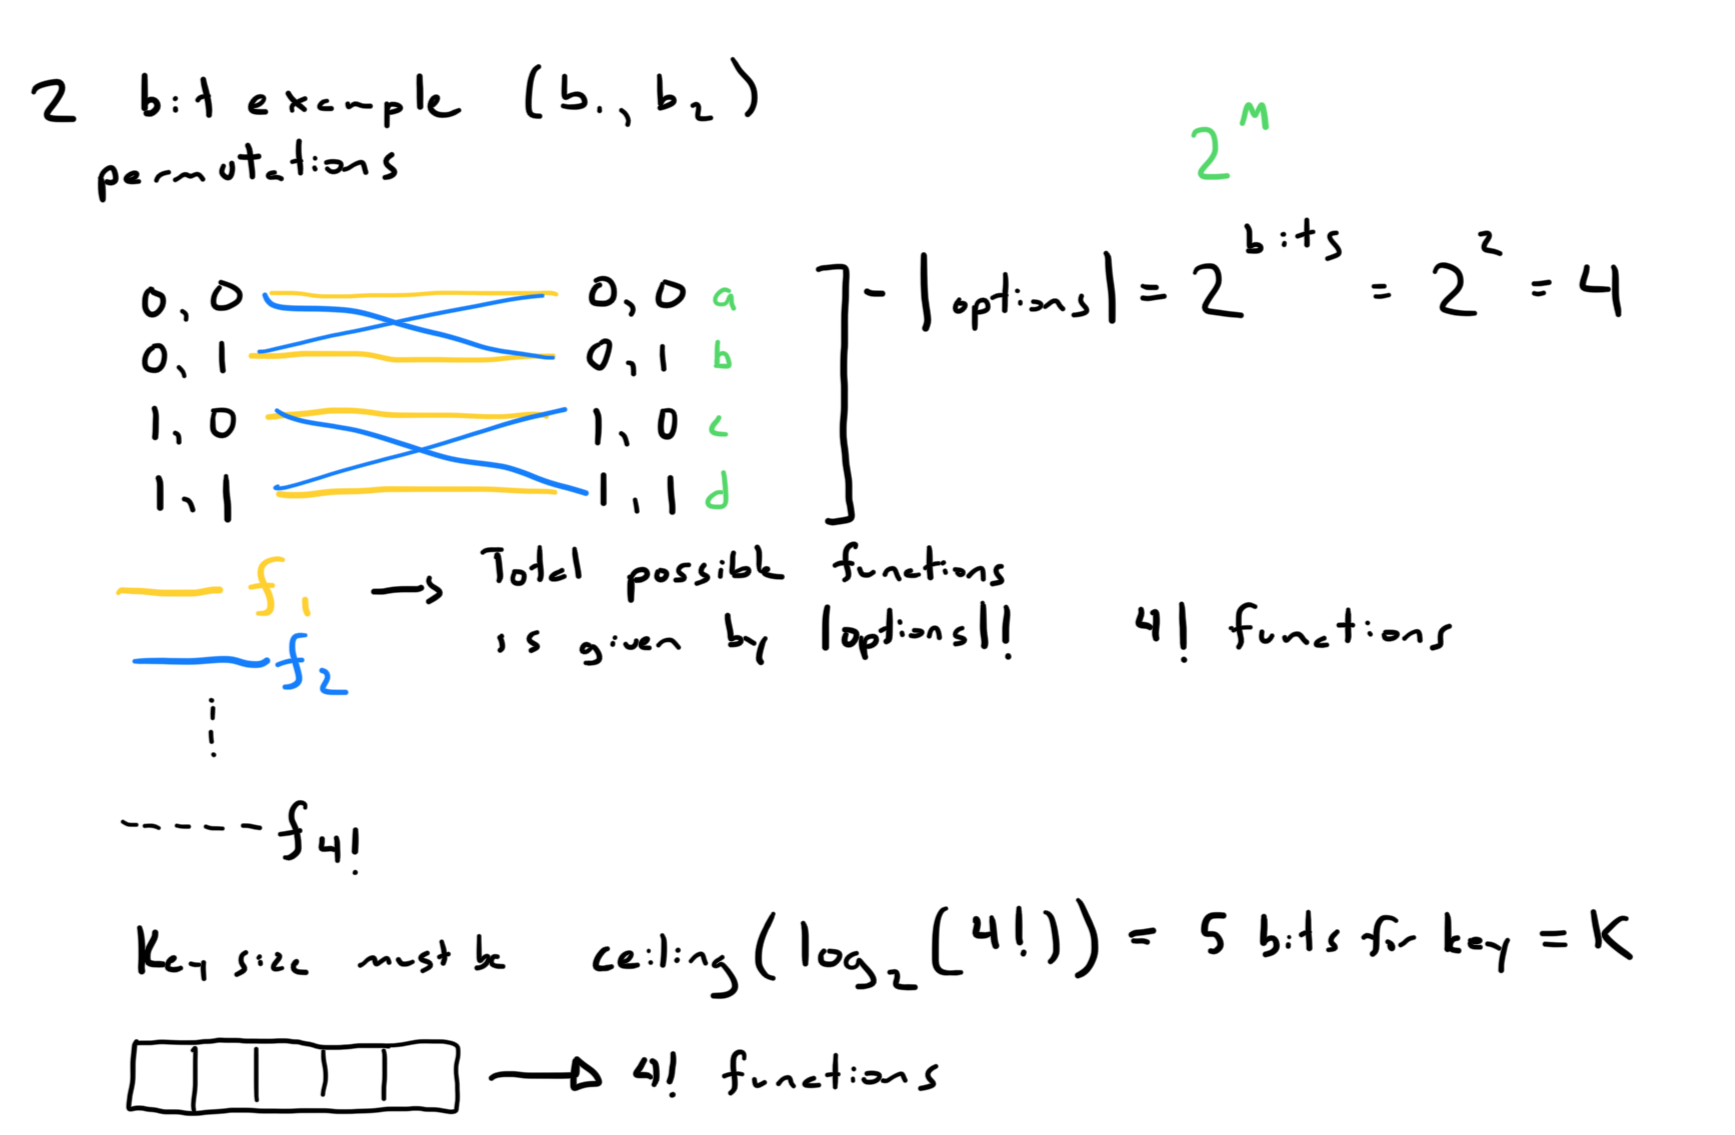 2 bit example (b₁, b₂)
permutations
2^M
|options| = 2^bits = 2² = 4
0, 0 0, 0 a
0, 1 0, 1 b
1, 0 1, 0 c
1, 1 1, 1 d
f₁ → Total possible functions
is given by |options|! 4! functions
f₂
f₄!
Key size must be ceiling(log₂(4!)) = 5 bits for key = K
→ 4! functions